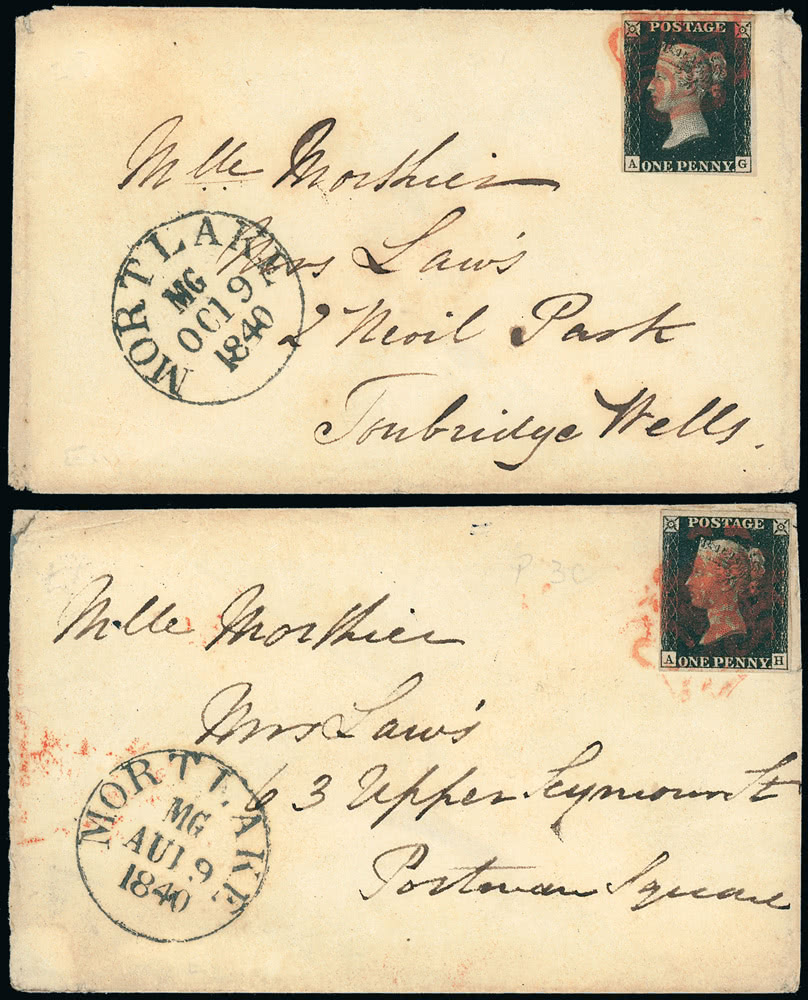 POSTAGE
A ONE PENNY. G
Mlle Morthier
Mrs Law's
2 Nevil Park
Tonbridge Wells.
MORTLAKE
MG
OCT 9
1840
P 3C
POSTAGE
A ONE PENNY H
Mlle Morthier
Mrs Law's
63 Upper Seymour St
Portman Square
MORTLAKE
MG
AU 19
1840